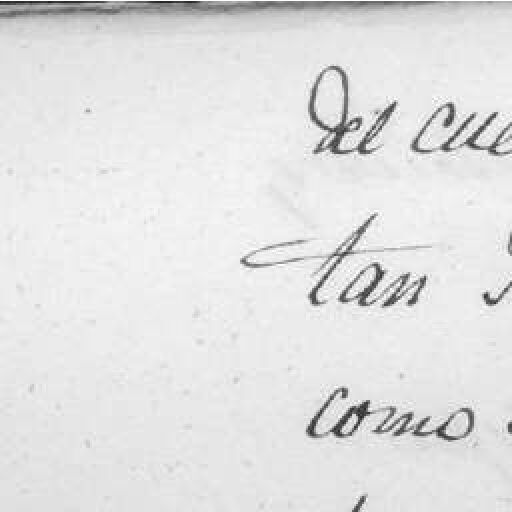 Del cue
tan
como